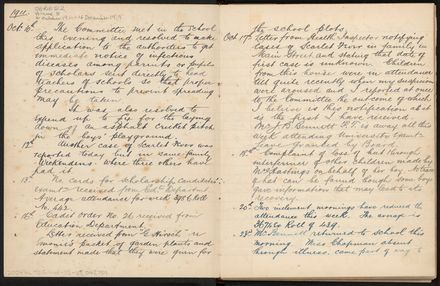 1911.
Oct. 10th The Committee met in the School
this evening and resolved to make
application to the authorities to get
immediate notice of infectious
diseases among parents or pupils
of scholars sent directly to head
teachers of schools so that proper
precautions to prevent spreading
may be taken.
It was also resolved to
expend up to for the laying
down of an asphalt cricket pitch
in the boys' playground.
12th Another case of Scarlet Fever was
reported today but in same family
attendance where three others have
had it.
13th Exam. Cards for Scholarship Candidates'
exam. received from Educ. Department
Average attendance for week Roll
No.
16th Cadet order No. 26 received from
Education Department.
Letter received from "E. Hirsch" re
Simonis's packet of garden plants and
statement made that they were given for
the school plots.
Oct. 17th Letter from Health Inspector notifying
cases of Scarlet Fever in family in
Main Street and stating that date of
first case is unknown. Children
from this house were in attendance
till quite recently when my suspicions
were aroused and I reported at once
to the Committee the outcome of which
I believe is the notification and
is the first I have received.
Mr. J. D. Bennett P.T. is away all this
week attending University exam.
leave granted by Board.
19th Complaint of loss of hat through
interference of other children made by
Mr. Hastings on behalf of his boy. No trace
of hat can be found though some boys
gave information that may lead to its
recovery.
20th Two inclement mornings have reduced the
attendance this week. The average is
Roll of 429.
23rd Mr. Bennett returned to School this
morning. Miss Chapman absent
through illness, came part of way to